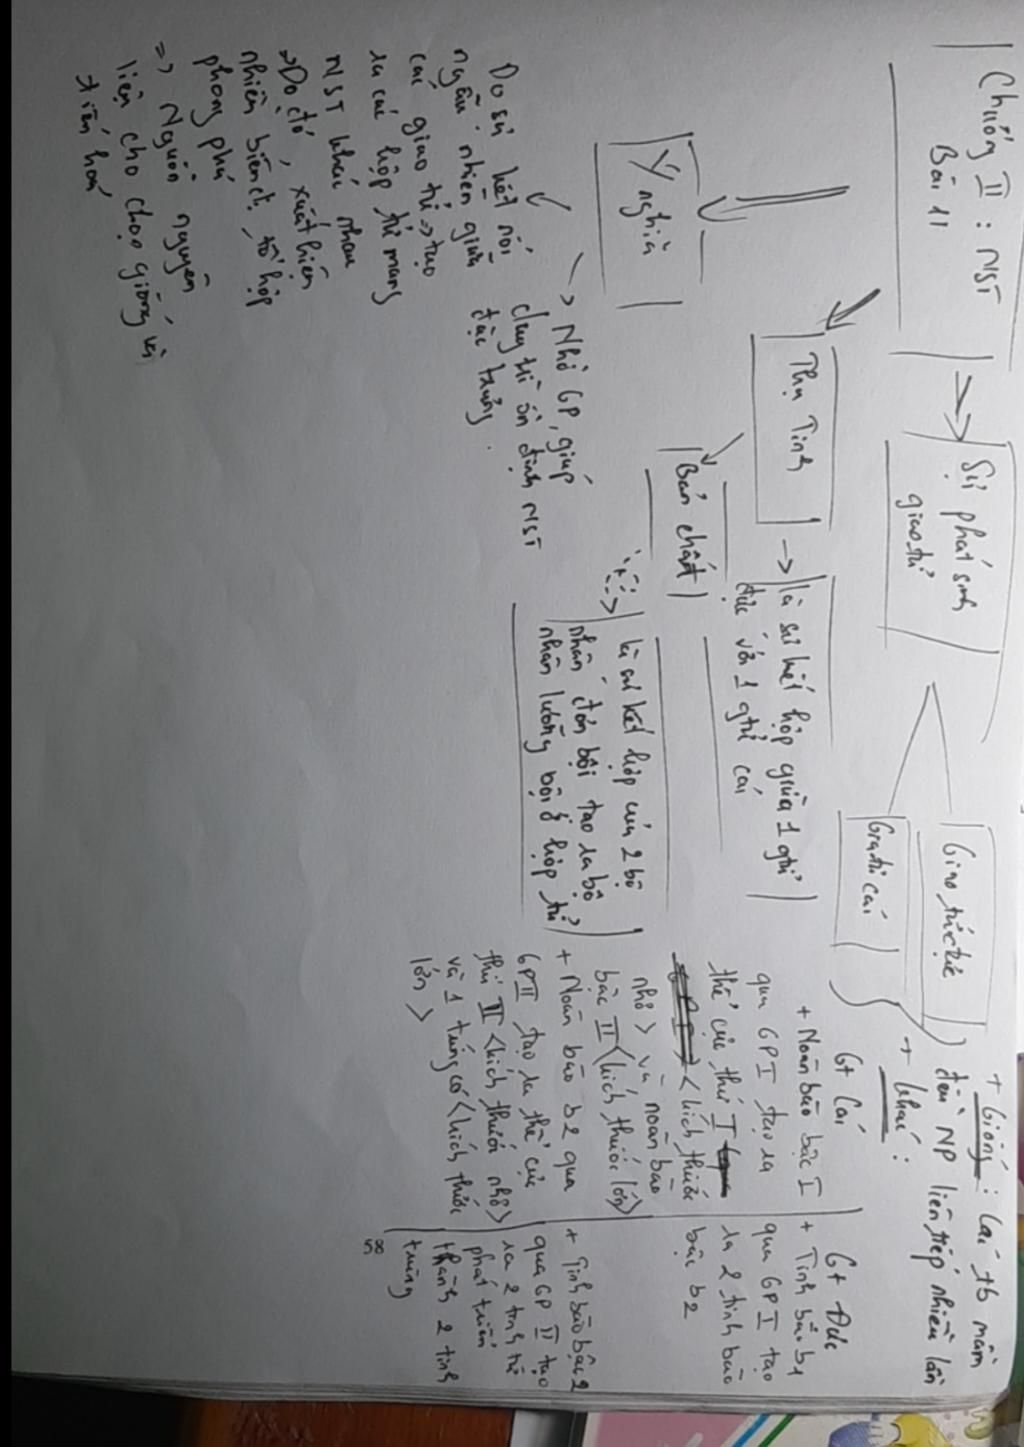 Chương II: NST
Bài 11
Sự phát sinh
giao tử
Giao tử đực
Giao tử cái
+ Giống: Các tb mầm
đều NP liên tiếp nhiều lần
+ Khác:
Gt Cái
+ Noãn bào bậc I
qua GP I tạo ra
thể cực thứ I
< kích thước
nhỏ > và noãn bào
bậc II < kích thước lớn >
+ Noãn bào b2 qua
GP II tạo ra thể cực
thứ II < kích thước nhỏ >
và 1 tế trứng có < kích thước
lớn >
Gt Đực
+ Tinh bào b1
qua GP I tạo
ra 2 tinh bào
bậc b2
+ Tinh bào bậc 2
qua GP II tạo
ra 2 tinh tử
phát triển
thành 2 tinh
trùng
Thụ Tinh
là sự kết hợp giữa 1 gtử
đực với 1 gtử cái
Bản chất
là sự kết hợp của 2 bộ
nhân đơn bội tạo ra bộ
nhân lưỡng bội ở hợp tử
Ý nghĩa
-> Nhờ GP, giúp
duy trì ổn định NST
đặc trưng.
Do sự kết nối
ngẫu nhiên giữa
các giao tử => tạo
ra các hợp tử mang
NST khác nhau
=> Do đó, xuất hiện
nhiều biến dị tổ hợp
phong phú
=> Nguồn nguyên
liệu cho chọn giống và
tiến hoá
58